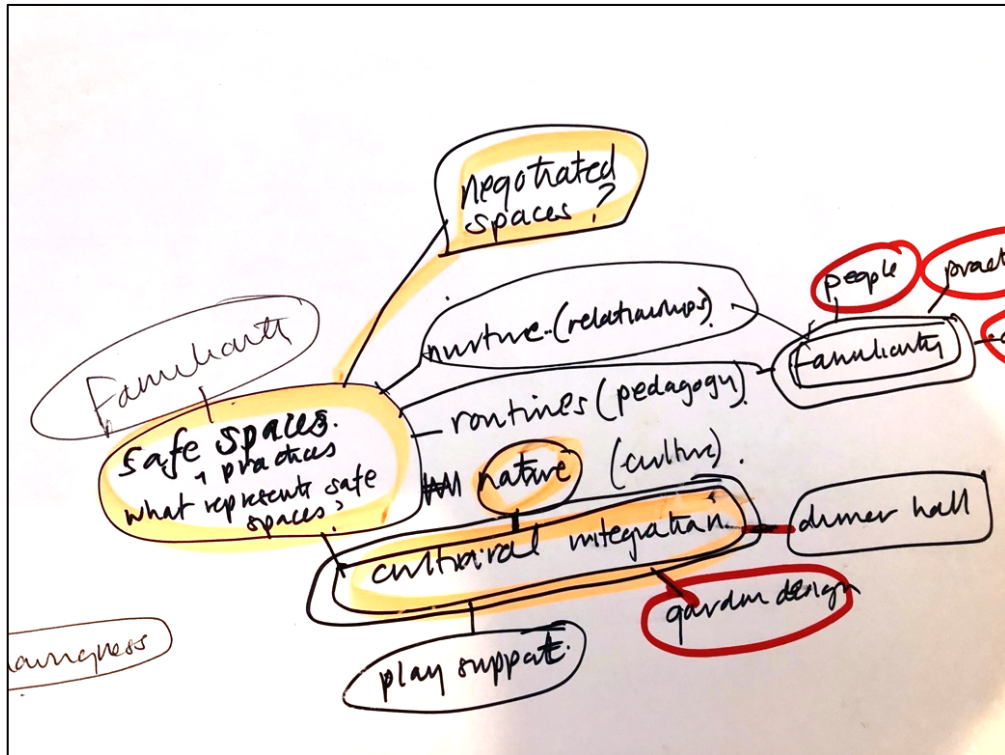 negotiated
spaces?
people
pract
nurture.. (relationships).
familiarity
Familiarity
routines (pedagogy).
safe spaces.
+ practices
what represents safe
spaces?
native (culture).
cultural integration.
dinner hall
garden design
play support.